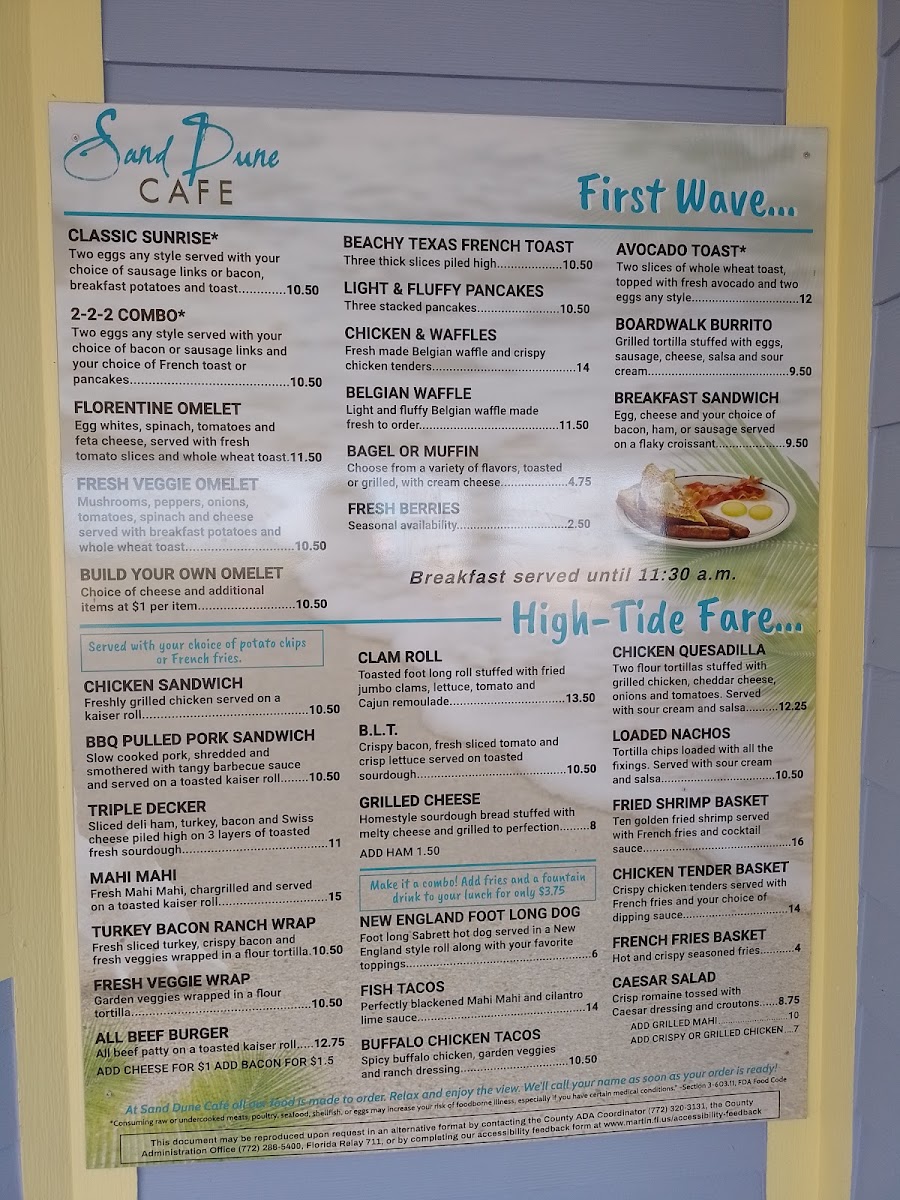 Sand Dune
CAFE
First Wave...
CLASSIC SUNRISE*
Two eggs any style served with your
choice of sausage links or bacon,
breakfast potatoes and toast............10.50
2-2-2 COMBO*
Two eggs any style served with your
choice of bacon or sausage links and
your choice of French toast or
pancakes.......................................10.50
FLORENTINE OMELET
Egg whites, spinach, tomatoes and
feta cheese, served with fresh
tomato slices and whole wheat toast.11.50
FRESH VEGGIE OMELET
Mushrooms, peppers, onions,
tomatoes, spinach and cheese
served with breakfast potatoes and
whole wheat toast..........................10.50
BUILD YOUR OWN OMELET
Choice of cheese and additional
items at $1 per item.......................10.50
BEACHY TEXAS FRENCH TOAST
Three thick slices piled high................10.50
LIGHT & FLUFFY PANCAKES
Three stacked pancakes....................10.50
CHICKEN & WAFFLES
Fresh made Belgian waffle and crispy
chicken tenders...................................14
BELGIAN WAFFLE
Light and fluffy Belgian waffle made
fresh to order..................................11.50
BAGEL OR MUFFIN
Choose from a variety of flavors, toasted
or grilled, with cream cheese................4.75
FRESH BERRIES
Seasonal availability..........................2.50
AVOCADO TOAST*
Two slices of whole wheat toast,
topped with fresh avocado and two
eggs any style..........................12
BOARDWALK BURRITO
Grilled tortilla stuffed with eggs,
sausage, cheese, salsa and sour
cream..................................9.50
BREAKFAST SANDWICH
Egg, cheese and your choice of
bacon, ham, or sausage served
on a flaky croissant.................9.50
Breakfast served until 11:30 a.m.
High-Tide Fare...
Served with your choice of potato chips
or French fries.
CHICKEN SANDWICH
Freshly grilled chicken served on a
kaiser roll........................................10.50
BBQ PULLED PORK SANDWICH
Slow cooked pork, shredded and
smothered with tangy barbecue sauce
and served on a toasted kaiser roll.......10.50
TRIPLE DECKER
Sliced deli ham, turkey, bacon and Swiss
cheese piled high on 3 layers of toasted
fresh sourdough...................................11
MAHI MAHI
Fresh Mahi Mahi, chargrilled and served
on a toasted kaiser roll..........................15
TURKEY BACON RANCH WRAP
Fresh sliced turkey, crispy bacon and
fresh veggies wrapped in a flour tortilla.10.50
FRESH VEGGIE WRAP
Garden veggies wrapped in a flour
tortilla...........................................10.50
ALL BEEF BURGER
All beef patty on a toasted kaiser roll....12.75
ADD CHEESE FOR $1 ADD BACON FOR $1.5
CLAM ROLL
Toasted foot long roll stuffed with fried
jumbo clams, lettuce, tomato and
Cajun remoulade............................13.50
B.L.T.
Crispy bacon, fresh sliced tomato and
crisp lettuce served on toasted
sourdough....................................10.50
GRILLED CHEESE
Homestyle sourdough bread stuffed with
melty cheese and grilled to perfection........8
ADD HAM 1.50
Make it a combo! Add fries and a fountain
drink to your lunch for only $3.75
NEW ENGLAND FOOT LONG DOG
Foot long Sabrett hot dog served in a New
England style roll along with your favorite
toppings.............................................6
FISH TACOS
Perfectly blackened Mahi Mahi and cilantro
lime sauce.........................................14
BUFFALO CHICKEN TACOS
Spicy buffalo chicken, garden veggies
and ranch dressing..........................10.50
CHICKEN QUESADILLA
Two flour tortillas stuffed with
grilled chicken, cheddar cheese,
onions and tomatoes. Served
with sour cream and salsa.........12.25
LOADED NACHOS
Tortilla chips loaded with all the
fixings. Served with sour cream
and salsa............................10.50
FRIED SHRIMP BASKET
Ten golden fried shrimp served
with French fries and cocktail
sauce....................................16
CHICKEN TENDER BASKET
Crispy chicken tenders served with
French fries and your choice of
dipping sauce..........................14
FRENCH FRIES BASKET
Hot and crispy seasoned fries.........4
CAESAR SALAD
Crisp romaine tossed with
Caesar dressing and croutons.....8.75
ADD GRILLED MAHI....................10
ADD CRISPY OR GRILLED CHICKEN...7
At Sand Dune Cafe all our food is made to order. Relax and enjoy the view. We'll call your name as soon as your order is ready!
*Consuming raw or undercooked meats, poultry, seafood, shellfish, or eggs may increase your risk of foodborne illness, especially if you have certain medical conditions." -Section 3-603.11, FDA Food Code
This document may be reproduced upon request in an alternative format by contacting the County ADA Coordinator (772) 320-3131, the County
Administration Office (772) 288-5400, Florida Relay 711, or by completing our accessibility feedback form at www.martin.fl.us/accessibility-feedback